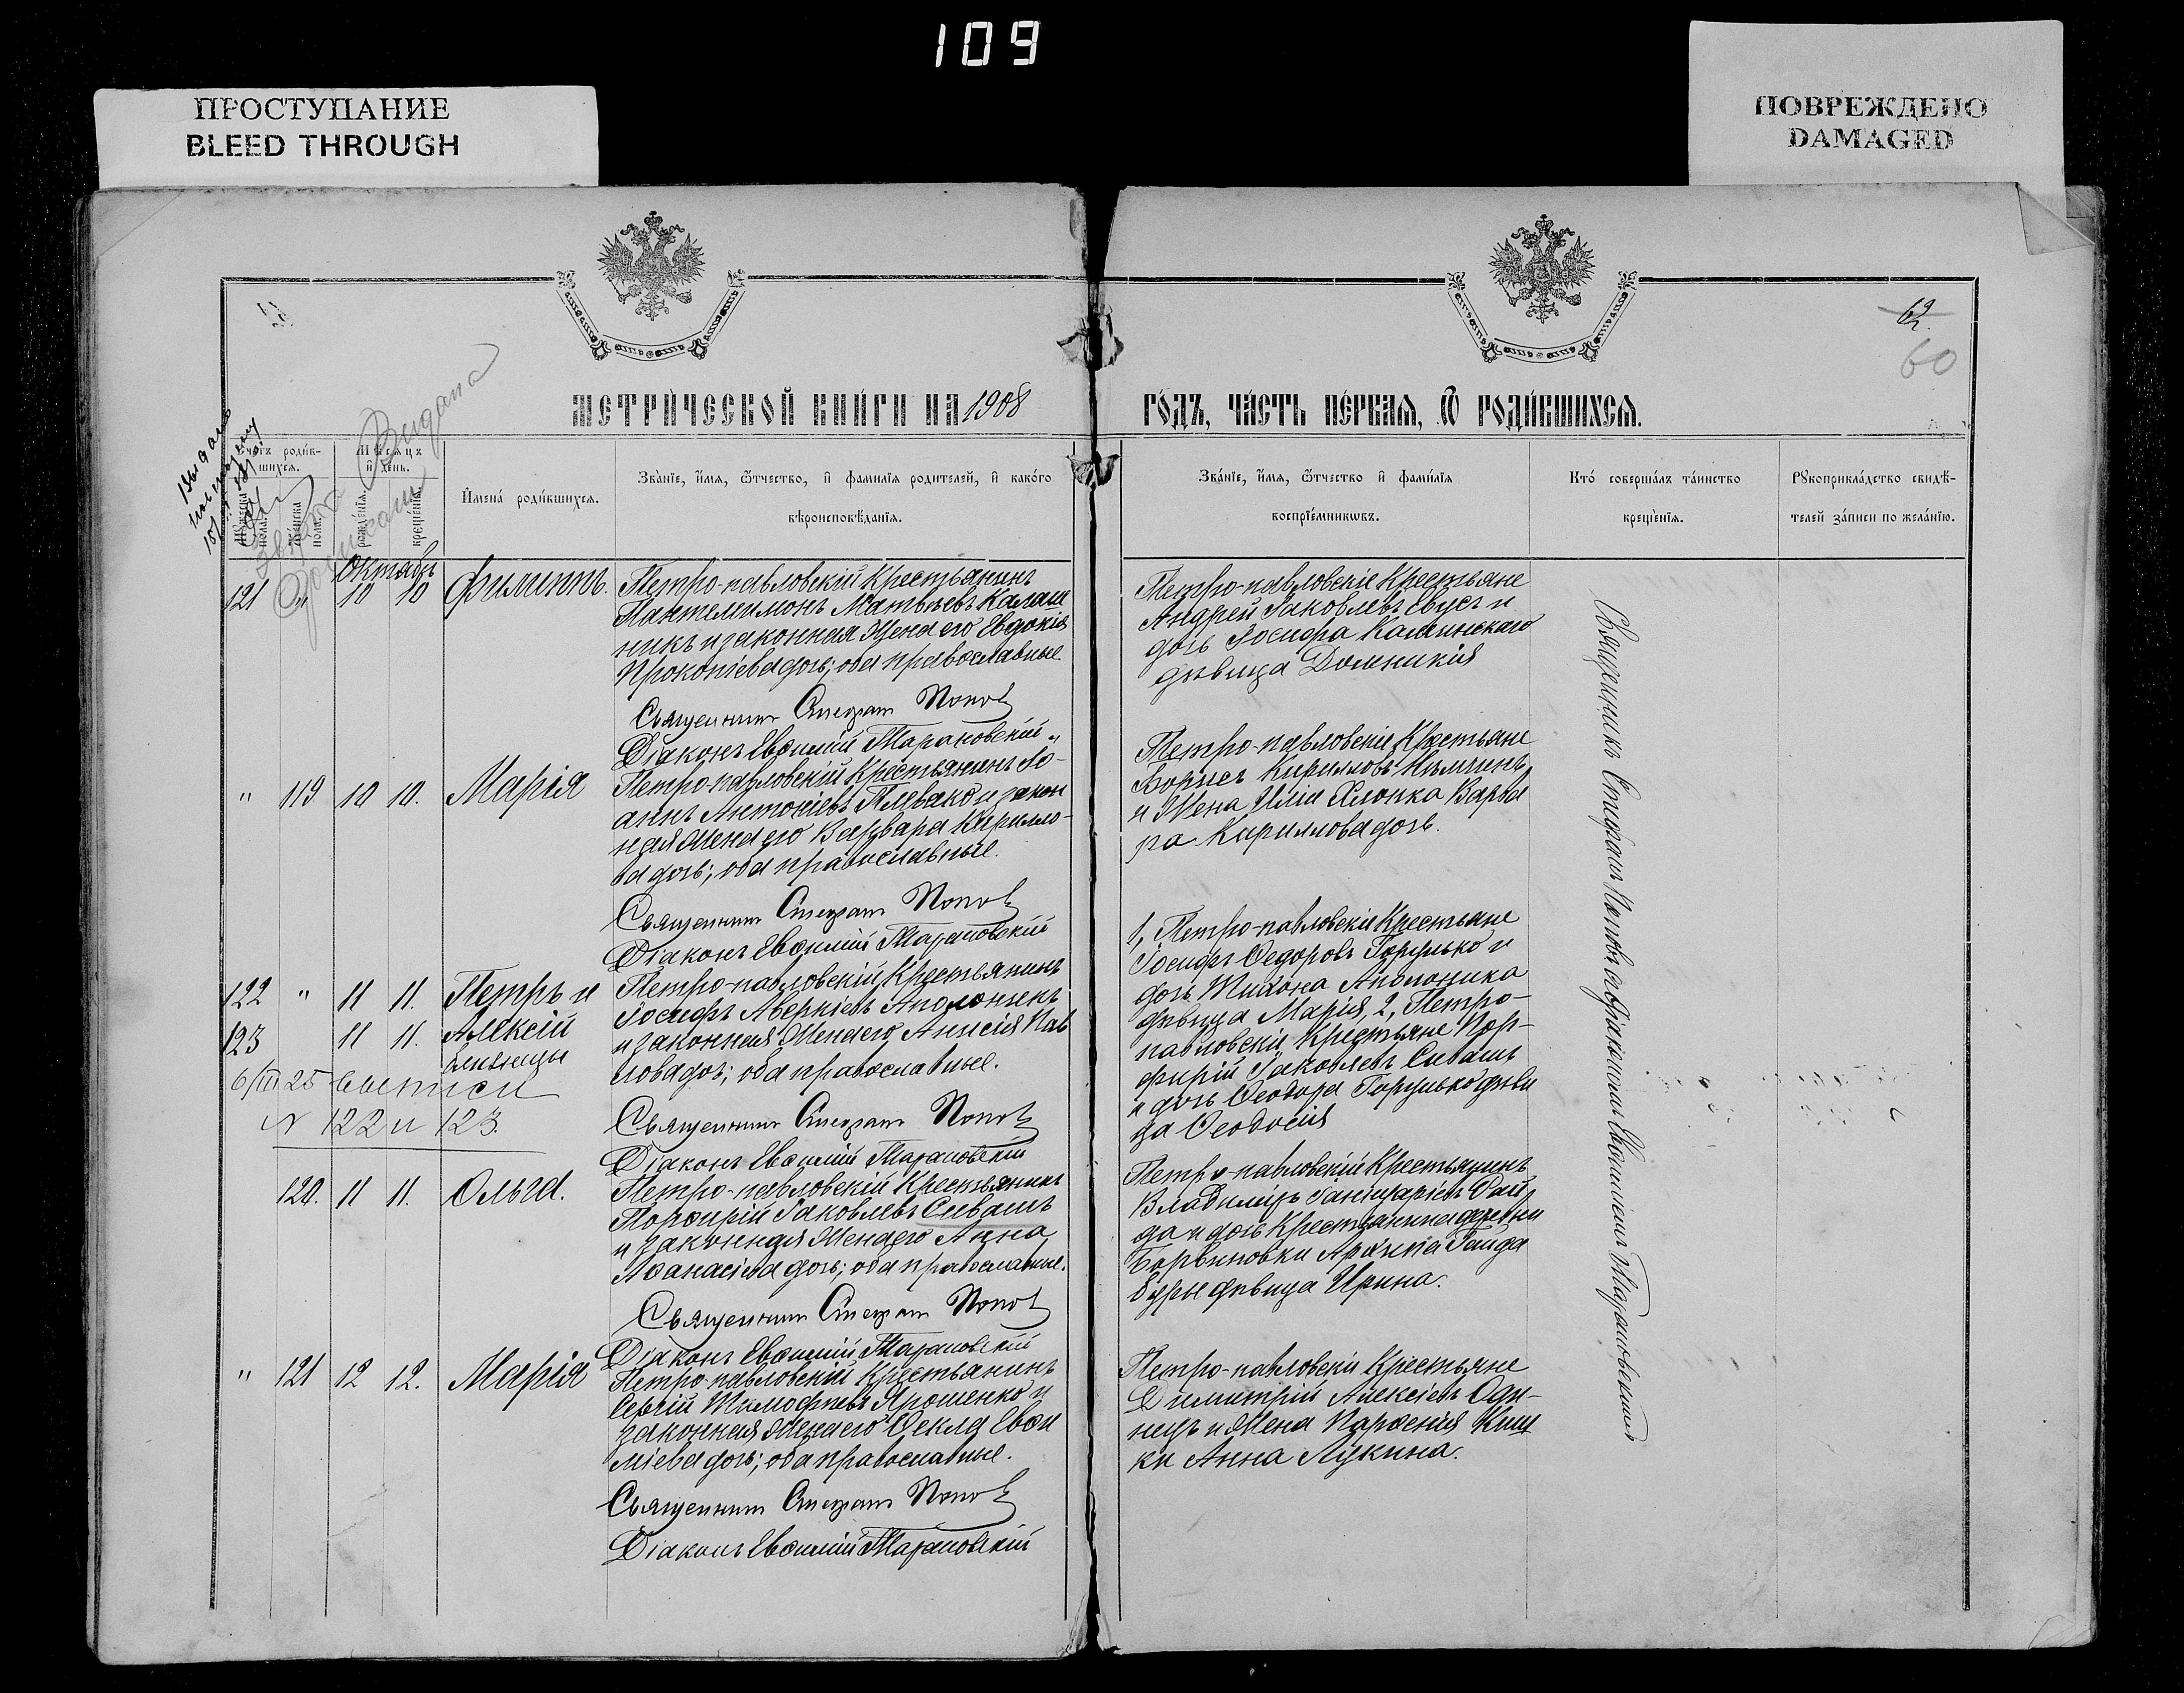 109
ПРОСТУПАНИЕ
BLEED THROUGH
ПОВРЕЖДЕНО
DAMAGED
62.
60
МЕТРИ́ЧЕСКОЙ КНИ́ГИ НА 1908
ГО́ДЪ, ЧА́СТЬ ПЕ́РВАЯ, Ѿ РОДИ́ВШИХСЯ.
Счетъ роди́в-
шихся.
Мѣсяцъ
и҆ день.
Мужеска
пола.
Женска
пола.
рожде́нїя.
креще́нїя.
И҆мена́ роди́вшихся.
Зва́нїе, и҆́мя, ѻ҆́тчество, и҆ фами́лїя родителей, и҆ како́го
вѣроисповѣ́данїя.
Зва́нїе, и҆́мя, ѻ҆́тчество и҆ фами́лїя
воспрїе́мникѡвъ.
Кто́ соверша́лъ та́инство
креще́нїя.
Рꙋкоприкла́дство свидѣ́-
телей за́писи по жела́нїю.
Выдано
Видана
Октябрь
121 " 10 10 Филиппъ.
Петро-павловскій Крестьянинъ
Пантелиимонъ Матвѣевъ Калаш
никъ и законная жена его Евдокія
Прокопіева дочь; оба православные.
Священникъ Стефанъ Поповъ
Діаконъ Евѳимій Тарановскій
Петро-павловскіе Крестьяне
Андрей Іаковлевъ Евусъ и
дочь Іосифа Калинскаго
дѣвица Домникія
" 119 10 10. Марія
Петро-павловскій Крестьянинъ Іо-
аннъ Антоніевъ Плевако и закон
ная жена его Варвара Кирилло-
ва дочь; оба православные.
Священникъ Стефанъ Поповъ
Діаконъ Евѳимій Тарановскій
Петро-павловскіе Крестьяне
Борисъ Кирилловъ
и жена Иліи Хлопка Варва
ра Кириллова дочь.
122 " 11 11. Петръ и
123 11 11. Алексій
близнецы
6/III 25 выписи
N 122 и 123.
Петро-павловскій Крестьянинъ
Іосифъ Аверкіевъ Аполоникъ
и законная жена его Анисія Пав
лова дочь; оба православные.
Священникъ Стефанъ Поповъ
Діаконъ Евѳимій Тарановскій
1, Петро-павловскіе Крестьяне
Іосифъ Ѳедоровъ Горулько и
дочь Тихона Аполоника
дѣвица Марія, 2, Петро-
павловскіе Крестьяне Пор-
фирій Іаковлевъ Сивашъ
и дочь Ѳеодора Горулько дѣви
ца Ѳеодосія
120. 11 11. Ольга.
Петро-павловскій Крестьянинъ
Порфирій Іаковлевъ Сивашъ
и законная жена его Анна
Аѳанасіева дочь; оба православные.
Священникъ Стефанъ Поповъ
Діаконъ Евѳимій Тарановскій
Петро-павловскій Крестьянинъ
Владиміръ Гай
да и дочь Крестьянина деревни
Барвиновки Гайда
буры дѣвица Ирина.
" 121 12 12. Марія
Петро-павловскій Крестьянинъ
Сергій Тимофѣевъ Ярошенко и
законная жена его Ѳекла Евѳи
міева дочь; оба православные.
Священникъ Стефанъ Поповъ
Діаконъ Евѳимій Тарановскій
Петро-павловскіе Крестьяне
Димитрій Алексіевъ Оди-
нецъ и жена Парѳенія Киш
ки Анна Лукина.
Священникъ Стефанъ Поповъ съ діакономъ Евѳиміемъ Тарановскимъ